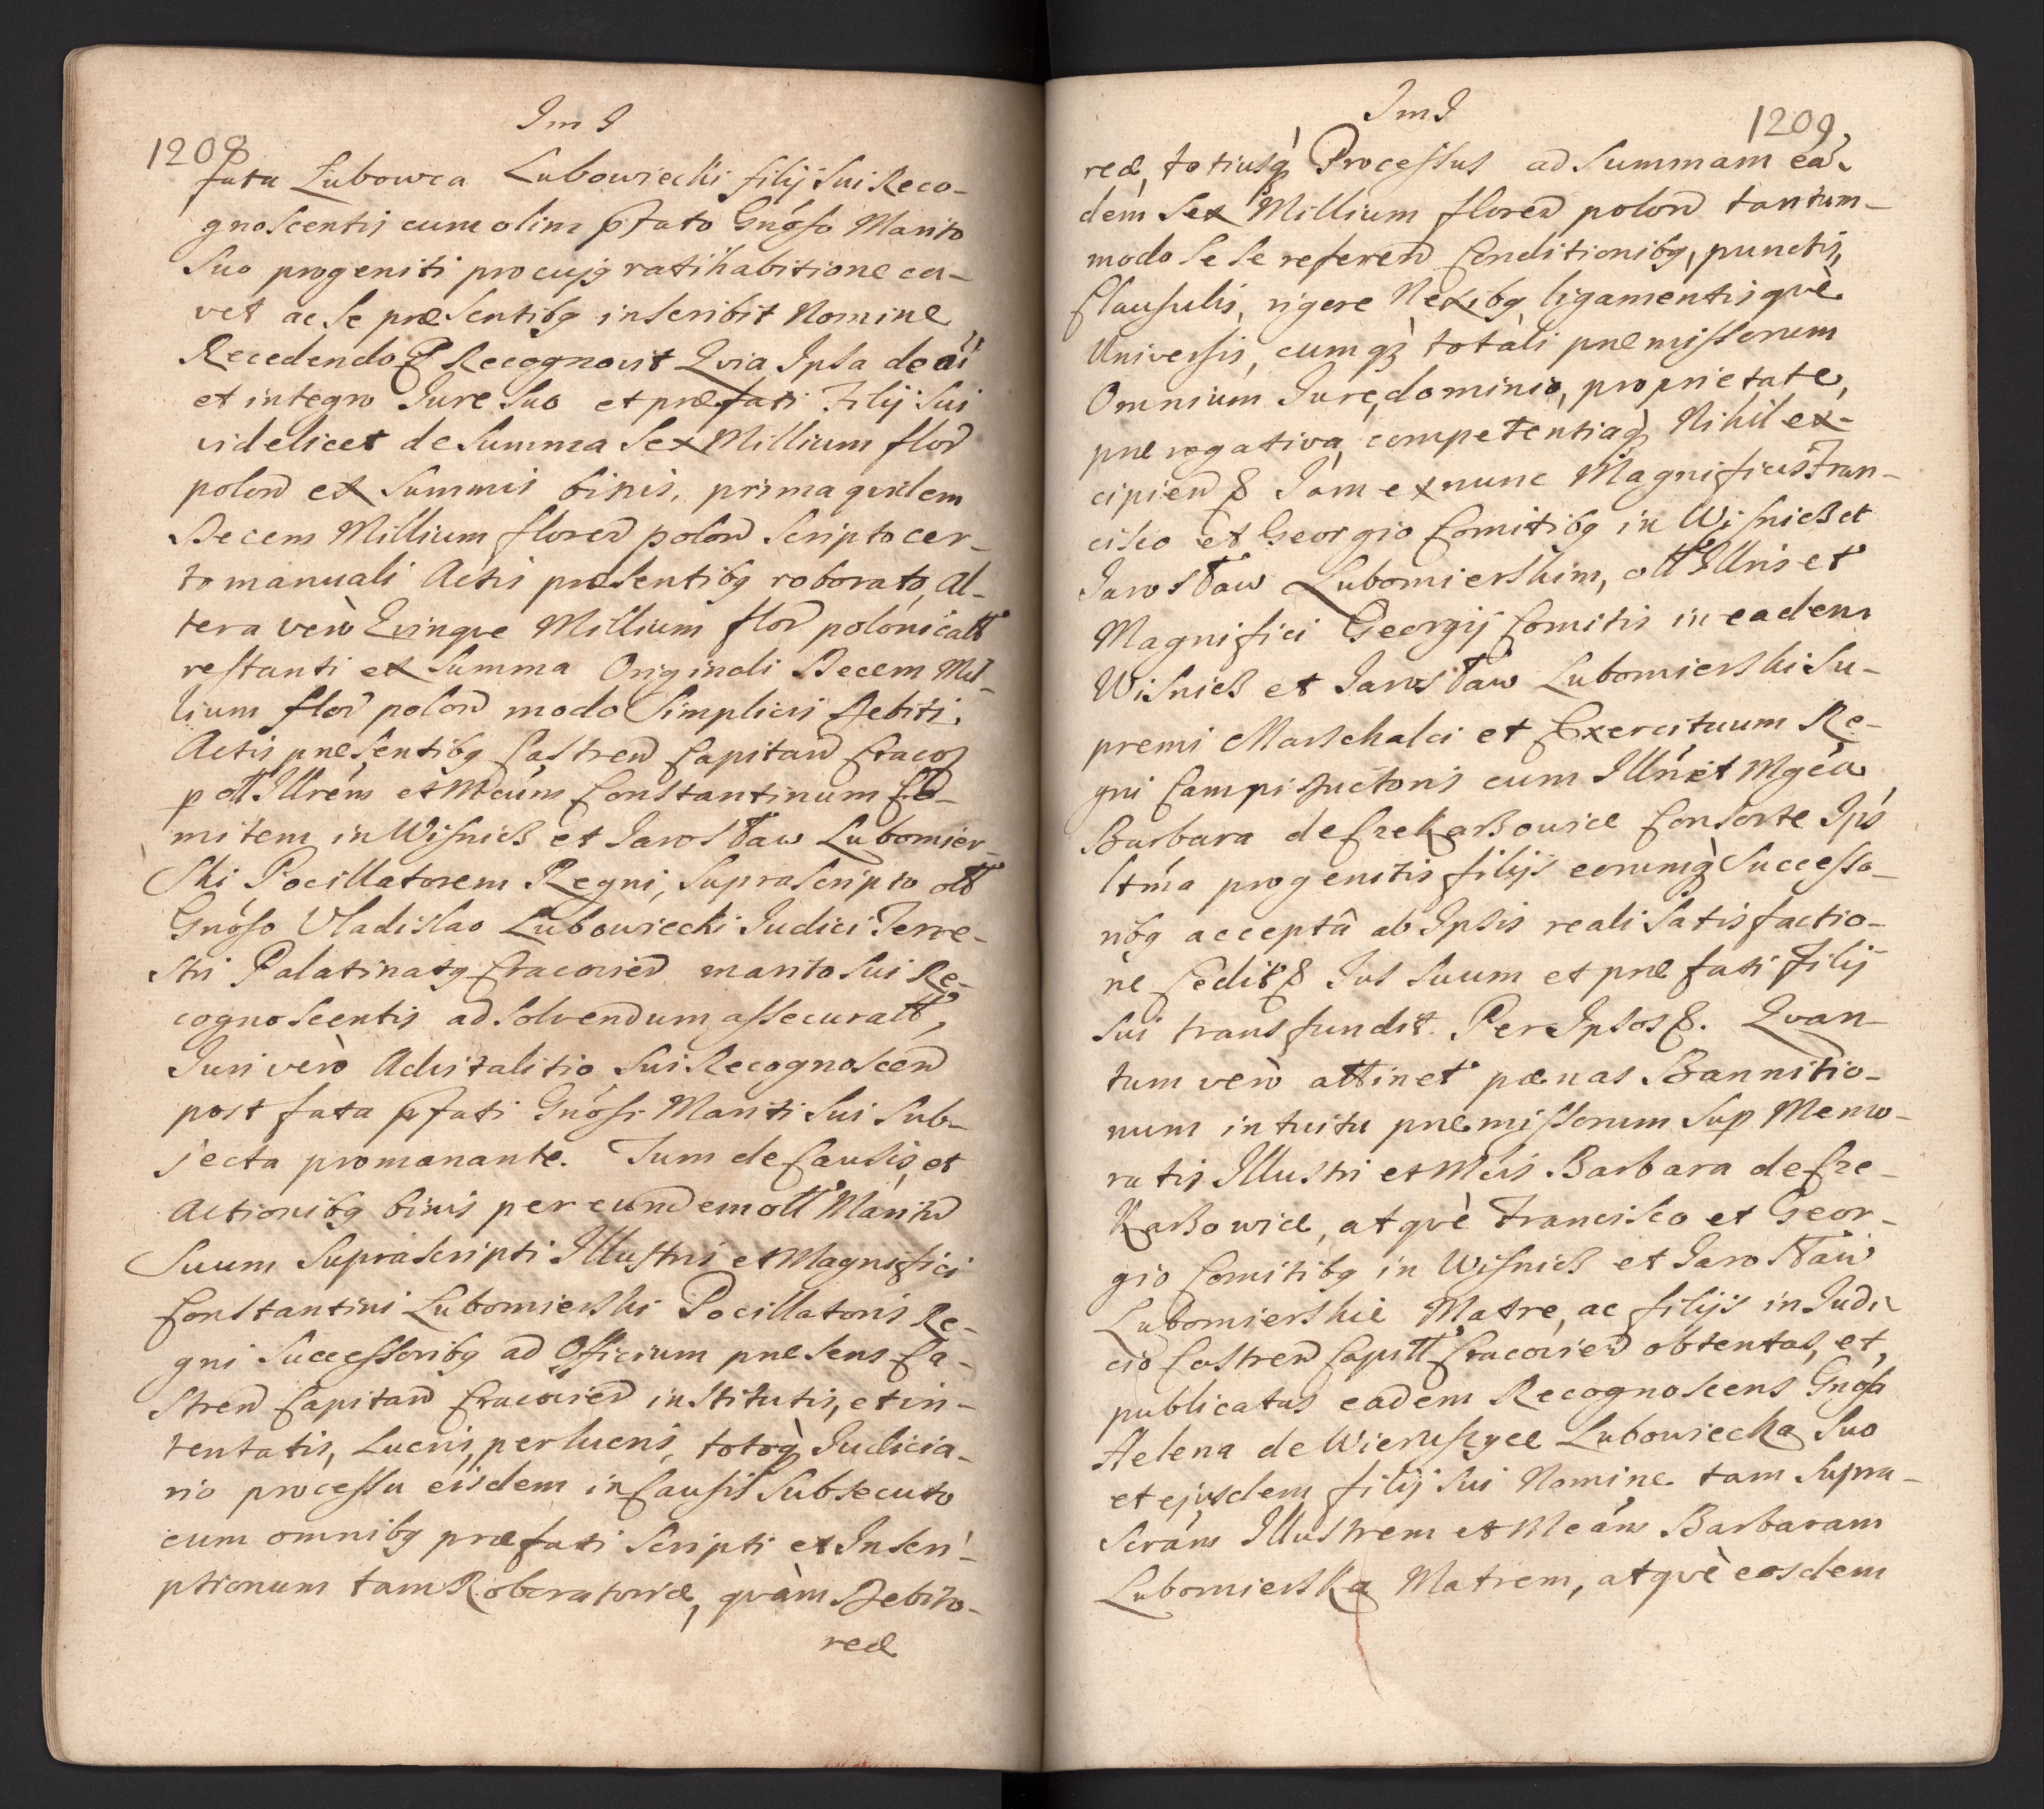 Im I
1208
fata Lubowca Lubowiecki filij Sui Reco-
gnoscentis cum olim pfato Gnoso Marito
Suo progeniti pro cujq ratihabitione ca-
vet ac Se præsentibq inscribit Nomine
Recedendo Recognovit Qvia Ipsa de
et integro Jure Suo et præfati Filij Sui
videlicet de Summa Sex Millium flor
polon ex Summis binis, prima quidem
Decem Millium floren polon Scripto cer-
to manuali Actis præsentibq roborato, Al-
tera verò Qvinqve Millium flor polonicalt
restanti ex Summa Originali Decem Mil-
lium flor polon modo Simplicis Debiti.
Actis præsentibq Castren Capitan Cracov
p olt Illrem et Mcum Constantinum Co-
mitem in Wisnicz et Jarosław Lubomier-
ski Pocillatorem Regni, Suprascripto olt
Gnoso Vladislao Lubowiecki Judici Terre-
stri Palatinatq Cracovien marito Sui Re-
cognoscentis ad Solvendum assecuratt,
Juri verò Advitalitio Sui Recognoscen
post fata pfati Gnosi Mariti Sui Sub-
jecta promanante. Tum de Causis, et
Actionibq binis per eundem olt Maritu
Suum Suprascripti Illustris et Magnifici
Constantini Lubomierski Pocillatoris Re-
gni Successoribq ad Officium præsens Ca-
stren Capitan Cracovien institutis, et in-
tentatis, Lucris, perlucris, totoq Judicia-
rio processu eisdem in Causis Subsecuto
cum omnibq præfati Scripti et Inscri-
ptionum tam Roboratoriæ, qvàm Debito-
reæ
Im I
1209
reæ, totiusq Processus ad Summam ea-
dem Sex Millium floren polon tantum-
modo Se Se referen Conditionibq, punctis,
Clausulis, rigere Nexibq ligamentisqvè
Universis, cumq totali præmissorum
Omnium Jure, dominio, proprietate,
prærogativa, competentiaq Nihil ex-
cipien Jam ex nunc Magnificis Fran-
cisco et Georgio Comitibq in Wisnicz et
Jarosław Lubomierskim, olt Illris et
Magnifici Georgij Comitis in eadem
Wisnicz et Jarosław Lubomierski Su-
premi Marschalci et Exercituum Re-
gni Campi Ductoris cum Illri et Mgca
Barbara de Czekarzowice Consorte Ipś
ltma progenitis filijs eorumq Successo-
ribq acceptâ ab Ipsis reali Satisfactio-
ne Cedit Jus Suum et præfati Filij
Sui transfundit. Per Ipsos. Qvan-
tum verò attinet pænas Bannitio-
num intuitu præmissorum Sup Memo-
ratis Illustri et Mcis Barbara de Cze-
karzowice, atqvè Francisco et Geor-
gio Comitibq in Wisnicz et Jarosław
Lubomierskie Matre, ac filijs in Judi-
cio Castren Capitt Cracovien obtentas, et,
publicatas eadem Recognoscens Gnosa
Helena de Wieruszyce Lubowiecka Suo
et ejusdem filij Sui Nomine tam Supra-
Scram Illustrem et Mcam Barbaram
Lubomierską Matrem, atqvè eosdem